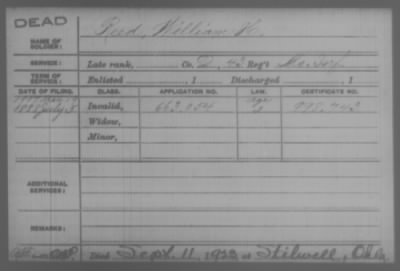 DEAD
NAME OF SOLDIER: Reed, William H.
SERVICE: Late rank, Co. D, 42 Reg't
TERM OF SERVICE: Enlisted , 1 Discharged , 1
DATE OF FILING. CLASS. APPLICATION NO. LAW. CERTIFICATE NO.
1888 July 5 Invalid, 663.054
Widow,
Minor,
ADDITIONAL SERVICES:
REMARKS:
Died Sept. 11, 1922 at Stilwell, Okla